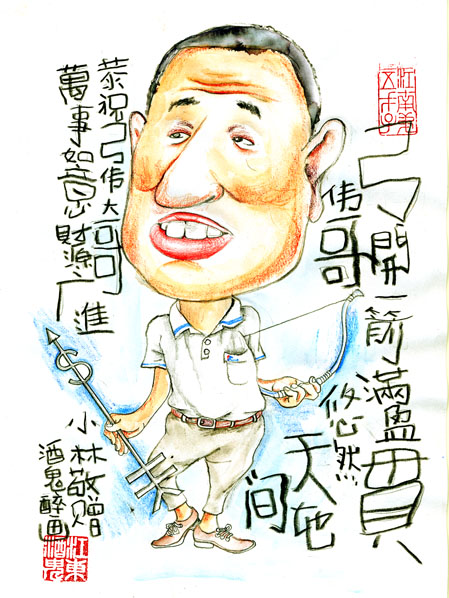 弓開一箭滿盈貫
伟哥悠然天地间
恭祝弓伟大哥
萬事如意財源广進
小林敬赠
酒鬼醉画
江東酒鬼